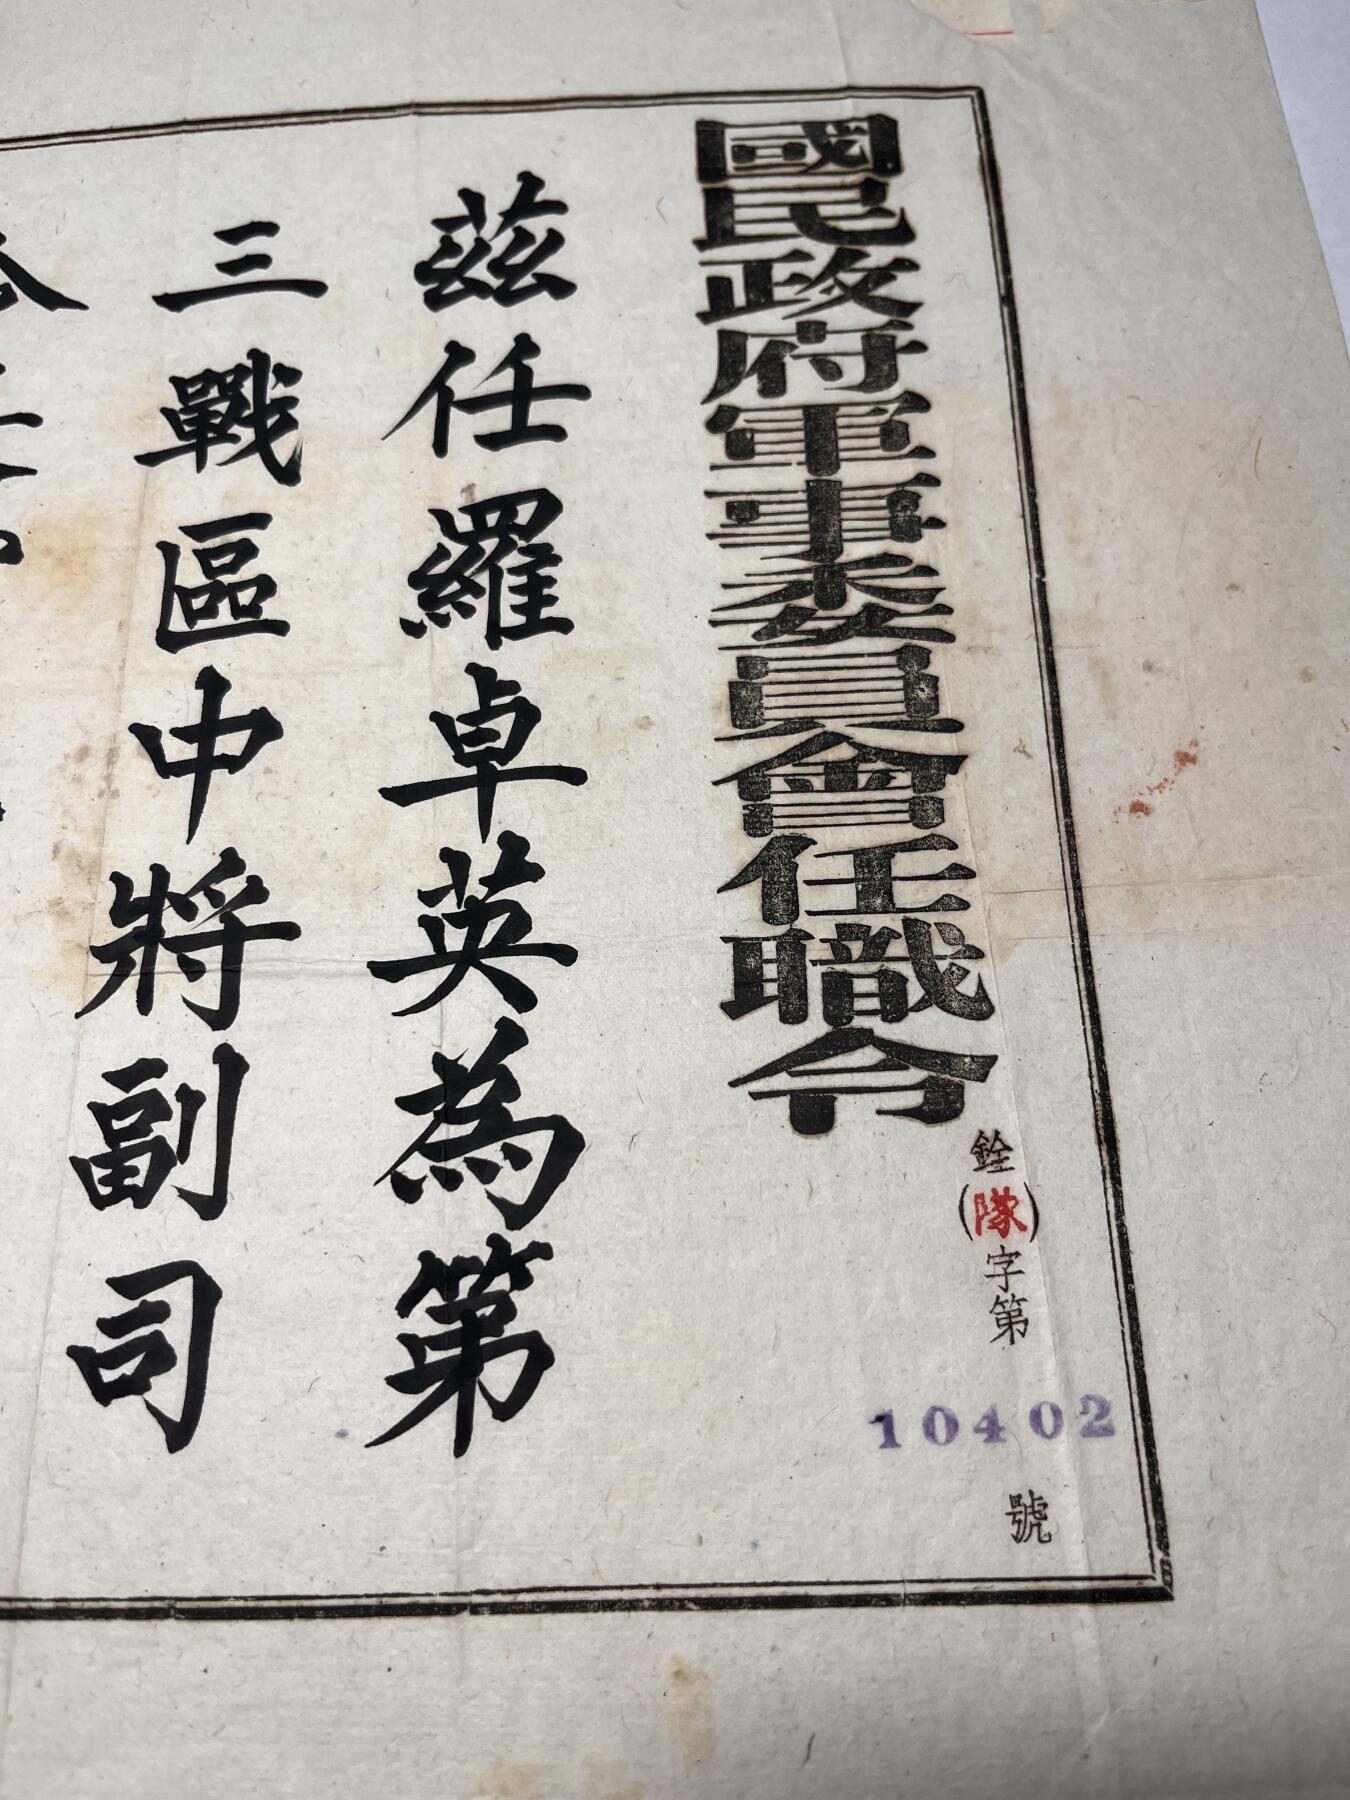 國民政府軍事委員會任職令
銓(隊)字第10402號
茲任羅卓英為第
三戰區中將副司